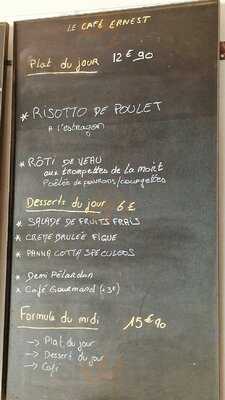 LE CAFÉ ERNEST
Plat du jour 12€90
* RISOTTO DE POULET
A l'estragon
* RÔTI DE VEAU
aux trompettes de la mort
Poêlée de poivrons/courgettes
Desserts du jour 6€
* SALADE DE FRUITS FRAIS
* CREME BRULÉE FIGUE
* PANNA COTTA SPECULOOS
* Demi Pélardon
* Café Gourmand (+3€)
Formule du midi 15€90
→ Plat du jour
→ Dessert du jour
→ Café